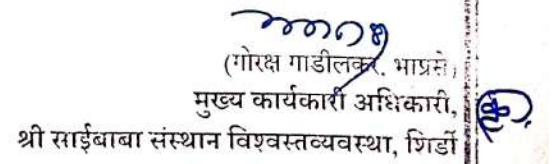 (गोरक्ष गाडीलकर, भाप्रसे)
मुख्य कार्यकारी अधिकारी,
श्री साईबाबा संस्थान विश्वस्तव्यवस्था, शिर्डी